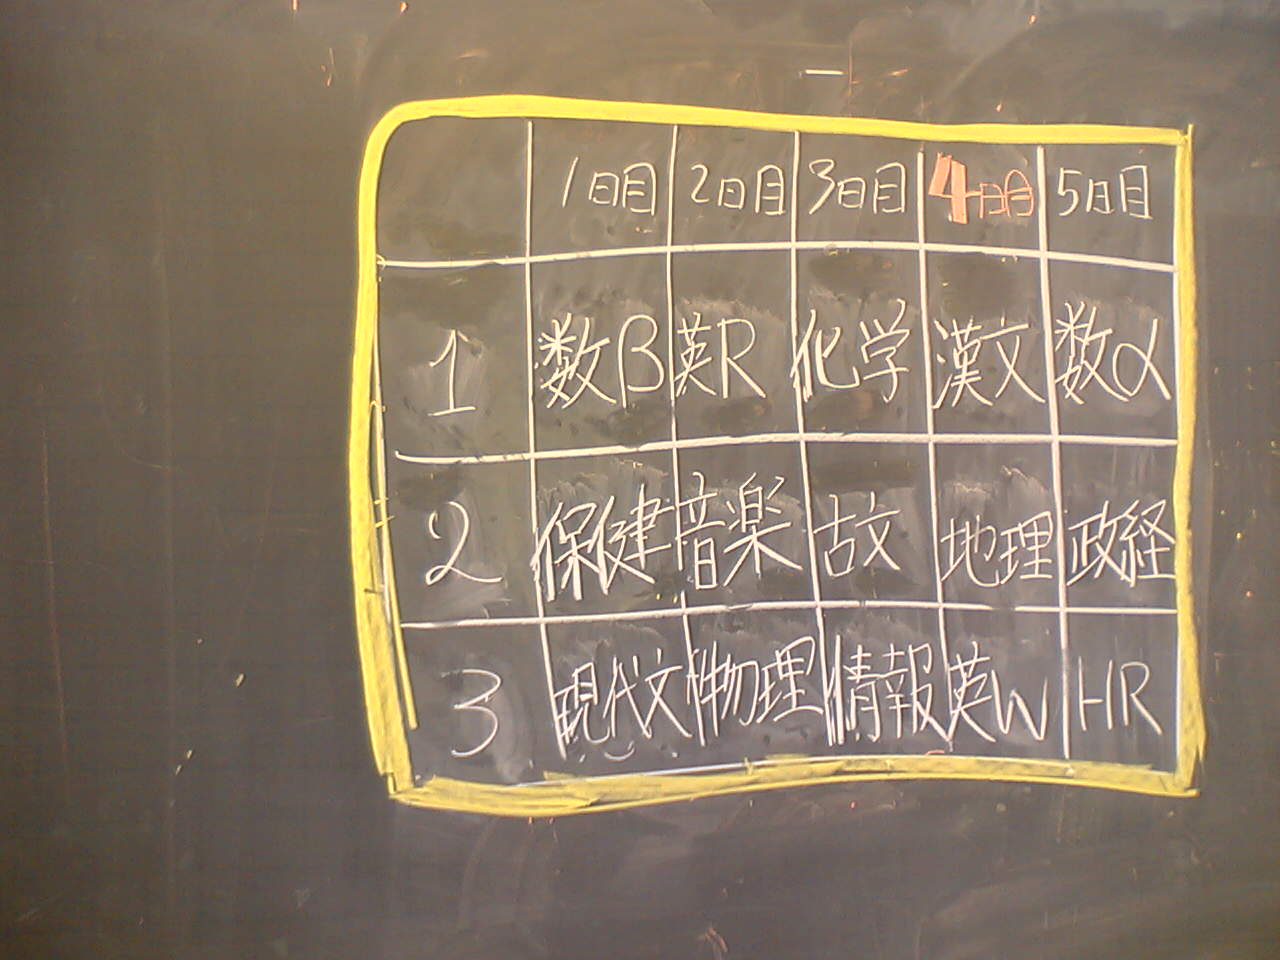 1日目 2日目 3日目 4日目 5日目
1 数β 英R 化学 漢文 数α
2 保健 音楽 古文 地理 政経
3 現代文 物理 情報 英W HR